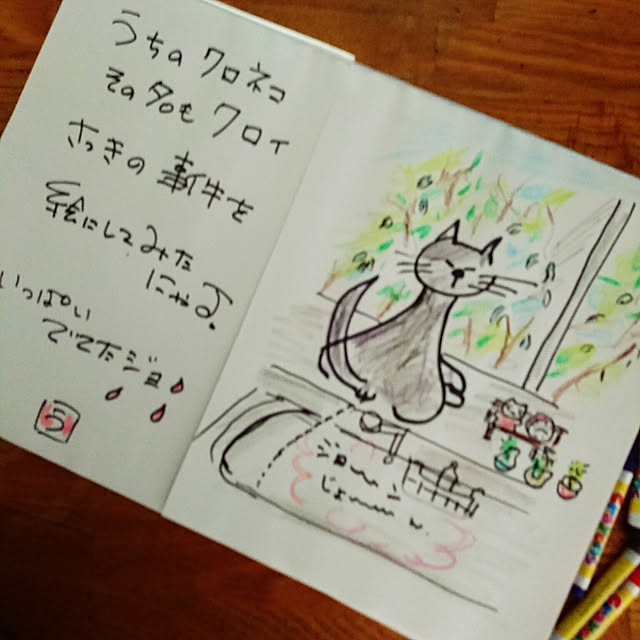 うちのクロネコ
その名もクロイ
さっきの事件を
絵にしてみた
にゃよ。
いっぱい
でてたジョ